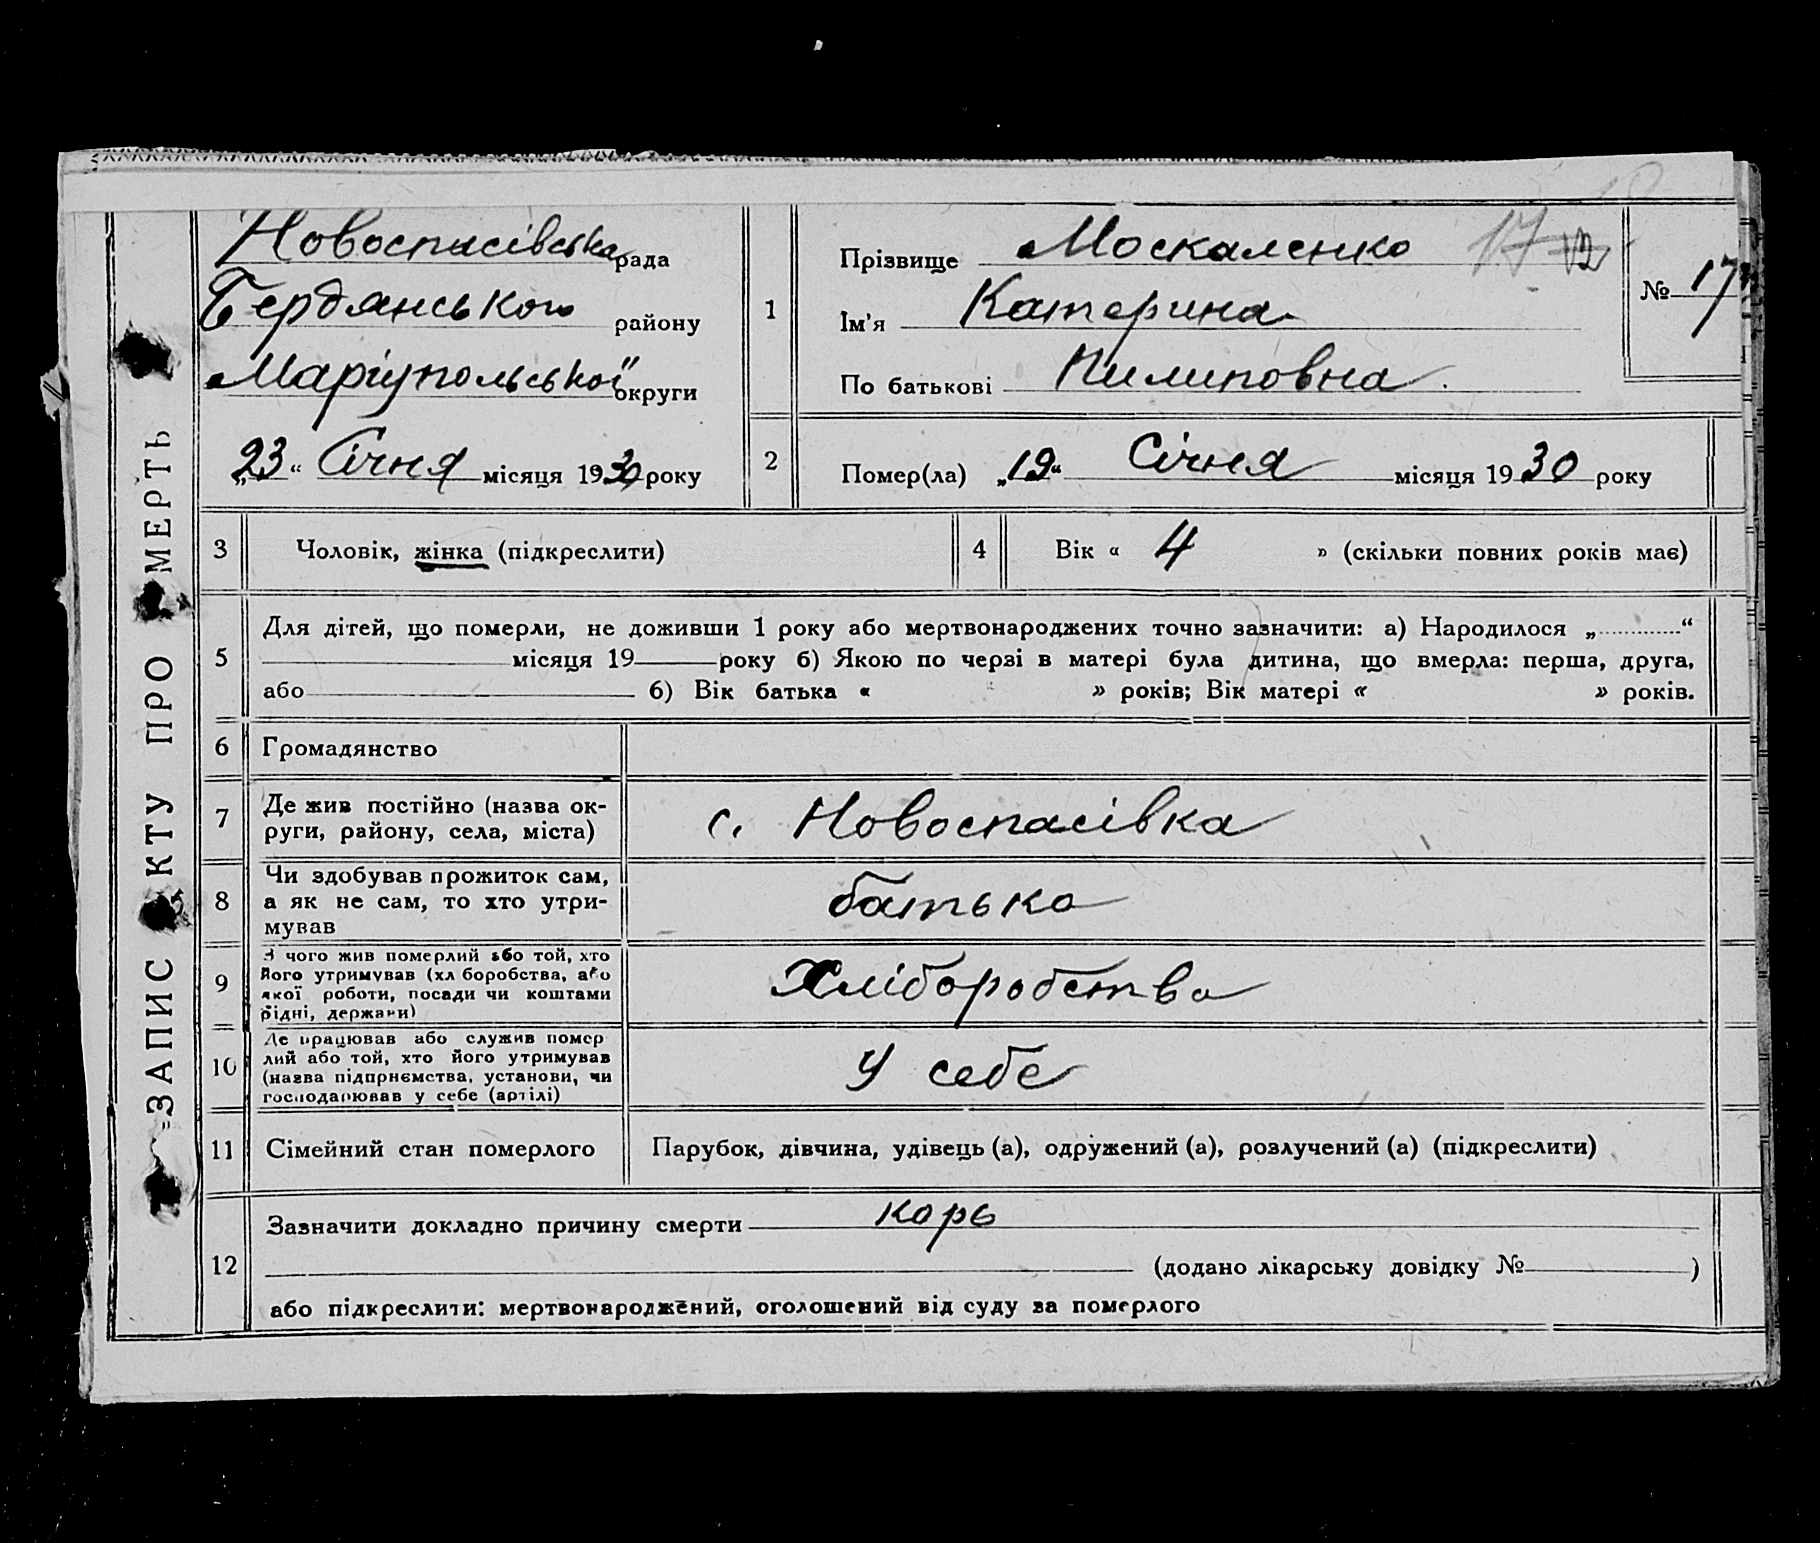 ЗАПИС АКТУ ПРО СМЕРТЬ
Новоспасівська рада
Бердянського району
Маріупольської округи
„23“ Січня місяця 1930 року
1
Прізвище Москаленко
17
Ім'я Катерина
По батькові Пилиповна.
№ 17
2
Помер(ла) „19“ Січня місяця 1930 року
3 Чоловік, жінка (підкреслити)
4 Вік « 4 » (скільки повних років має)
5
Для дітей, що померли, не доживши 1 року або мертвонароджених точно зазначити: а) Народилося „............“
місяця 19 року б) Якою по черзі в матері була дитина, що вмерла: перша, друга,
або б) Вік батька « » років; Вік матері « » років.
6 Громадянство
7
Де жив постійно (назва ок-
руги, району, села, міста)
с. Новоспасівка
8
Чи здобував прожиток сам,
а як не сам, то хто утри-
мував
батько
9
З чого жив померлий або той, хто
його утримував (хліборобства, або
якої роботи, посади чи коштами
рідні, держави)
Хліборобство
10
Де працював або служив помер
лий або той, хто його утримував
(назва підприємства, установи, чи
господарював у себе (артілі)
У себе
11 Сімейний стан померлого
Парубок, дівчина, удівець (а), одружений (а), розлучений (а) (підкреслити)
12
Зазначити докладно причину смерти корь
(додано лікарську довідку № )
або підкреслити: мертвонароджений, оголошений від суду за померлого